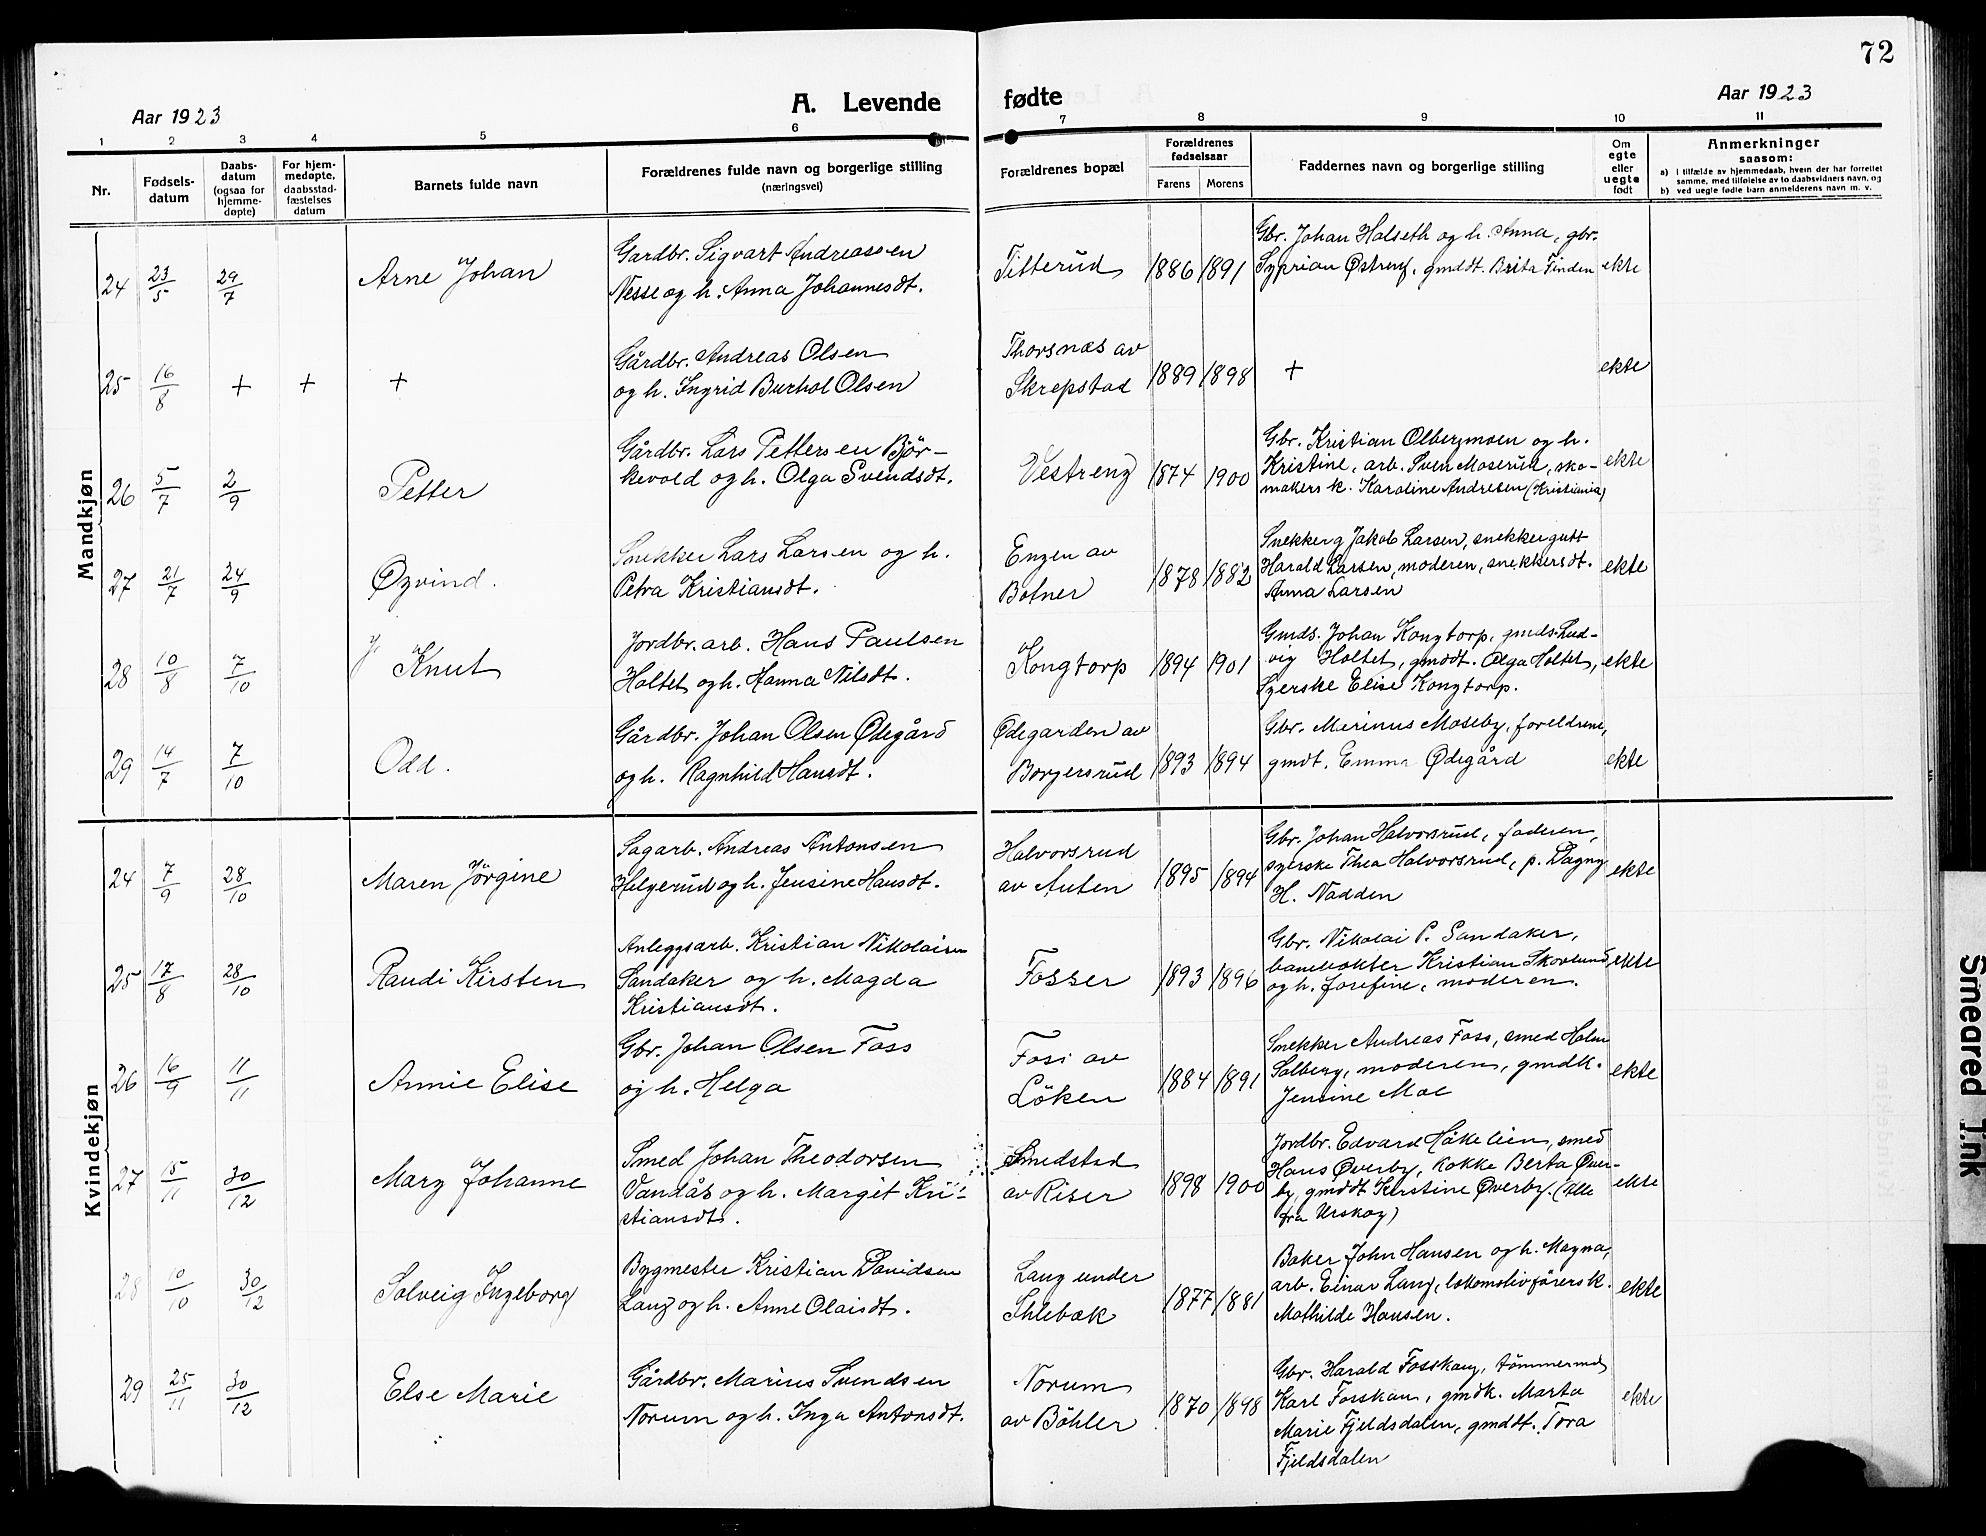 72
Aar 1923
A. Levende fødte
Aar 1923
1 2 3 4 5 6 7 8 9 10 11
Nr.
Fødsels-
datum
Daabs-
datum
(ogsaa for
hjemme-
døpte)
For hjem-
medøpte,
daabsstad-
fæstelses
datum
Barnets fulde navn
Forældrenes fulde navn og borgerlige stilling
(næringsvei)
Forældrenes bopæl
Forældrenes
fødselsaar
Farens Morens
Faddernes navn og borgerlige stilling
Om
egte
eller
uegte
født
Anmerkninger
saasom:
a) i tilfælde av hjemmedaab, hvem der har forrettet
samme, med tilføielse av to daabsvidners navn, og
b) ved uegte fødte barn anmelderens navn m. v.
Mandkjøn
24 23/5 29/7 Arne Johan
Gardbr. Sigvart Andreassen
Nesse og h. Anna Johannesdt.
Titterud 1886 1891
Gbr. Johan Holseth og h. Anna, gbr.
Syprian Østreng, gmdt. Brita Finden
ekte
25 16/8 + + +
Gårdbr. Andreas Olsen
og h. Ingrid Burhol Olsen
Thorsnæs av
Skrepstad
1889 1898 + ekte
26 5/7 2/9 Petter
Gårdbr. Lars Pettersen Bjør-
kevold og h. Olga Svendsdt.
Vestreng 1874 1900
Gbr. Kristian Olbergmoen og h.
Kristine, arb. Sven Moserud, sko-
makers k. Karoline Andresen (Kristiania)
ekte
27 21/7 24/9 Øyvind.
Snekker Lars Larsen og h.
Petra Kristiansdt.
Engen av
Botner
1878 1882
Snekker g Jakob Larsen, snekkergutt
Harald Larsen, moderen, snekkersdt.
Anna Larsen
ekte
28 10/8 7/10 Knut
Jordbr.arb. Hans Paulsen
Holtet og h. Hanna Nilsdt.
Kongtorp 1894 1901
Gmds. Johan Kongtorp, gmds. Lud-
vig Holtet, gmddt. Olga Holtet,
Syerske Elise Kongtorp.
ekte
29 14/7 7/10 Odd.
Gårdbr. Johan Olsen Ødegård
og h. Ragnhild Hansdt.
Ødegarden av
Borgersrud
1893 1894
Gbr. Marinus Moseby, foreldrene,
gmdt. Emma Ødegård
ekte
Kvindekjøn
24 7/9 28/10 Maren Jørgine
Sagarb. Andreas Antonsen
Helgerud og h. Jensine Hansdt.
Halvorsrud
av Auten
1895 1894
Gbr. Johan Halvorsrud, faderen,
syerske Thea Halvorsrud, p. Dagny
H. Nadden
ekte
25 17/8 28/10 Raudi Kirsten
Anleggsarb. Kristian Nikolaisen
Sandaker og h. Magda
Kristiansdt.
Fosser 1893 1896
Gbr. Nikolai P. Sandaker,
banevokter Kristian Skovlund,
og h. Josefine, moderen.
ekte
26 16/9 11/11 Annie Elise
Gbr. Johan Olsen Foss
og h. Helga
Foss av
Løken
1884 1891
Snekker Andreas Foss, smed Halm
Solberg, moderen, gmdk.
Jensine Moe
ekte
27 15/11 30/12 Mary Johanne
Smed Johan Theodorsen
Vandås og h. Margit Kri-
stiansdt.
Smedstad
av Riser
1898 1900
Jordbr. Edvard Håkeleien, smed
Hans Øverby, kokke Berta Øver-
by, gmddt Kirstine Øverby. (Alle
fra Urskog)
ekte
28 10/10 30/12 Solveig Ingeborg
Bygmester Kristian Davidsen
Lang og h. Anne Olaisdt.
Lang under
Shlebæk
1877 1881
Baker John Hansen og h. Magna,
arb. Einar Lang, lokomotivførers k.
Mathilde Hansen.
ekte
29 25/11 30/12 Else Marie
Gårdbr. Marius Svendsen
Norum og h. Inga Antonsdt.
Norum
av Bøhler
1870 1898
Gbr. Harald Fosskaug, tømmermd
Karl Fosskau, gmdk. Marta
Marie Fjeldsdalen, gmddt. Tora
Fjeldsdalen
ekte
Smeared Ink